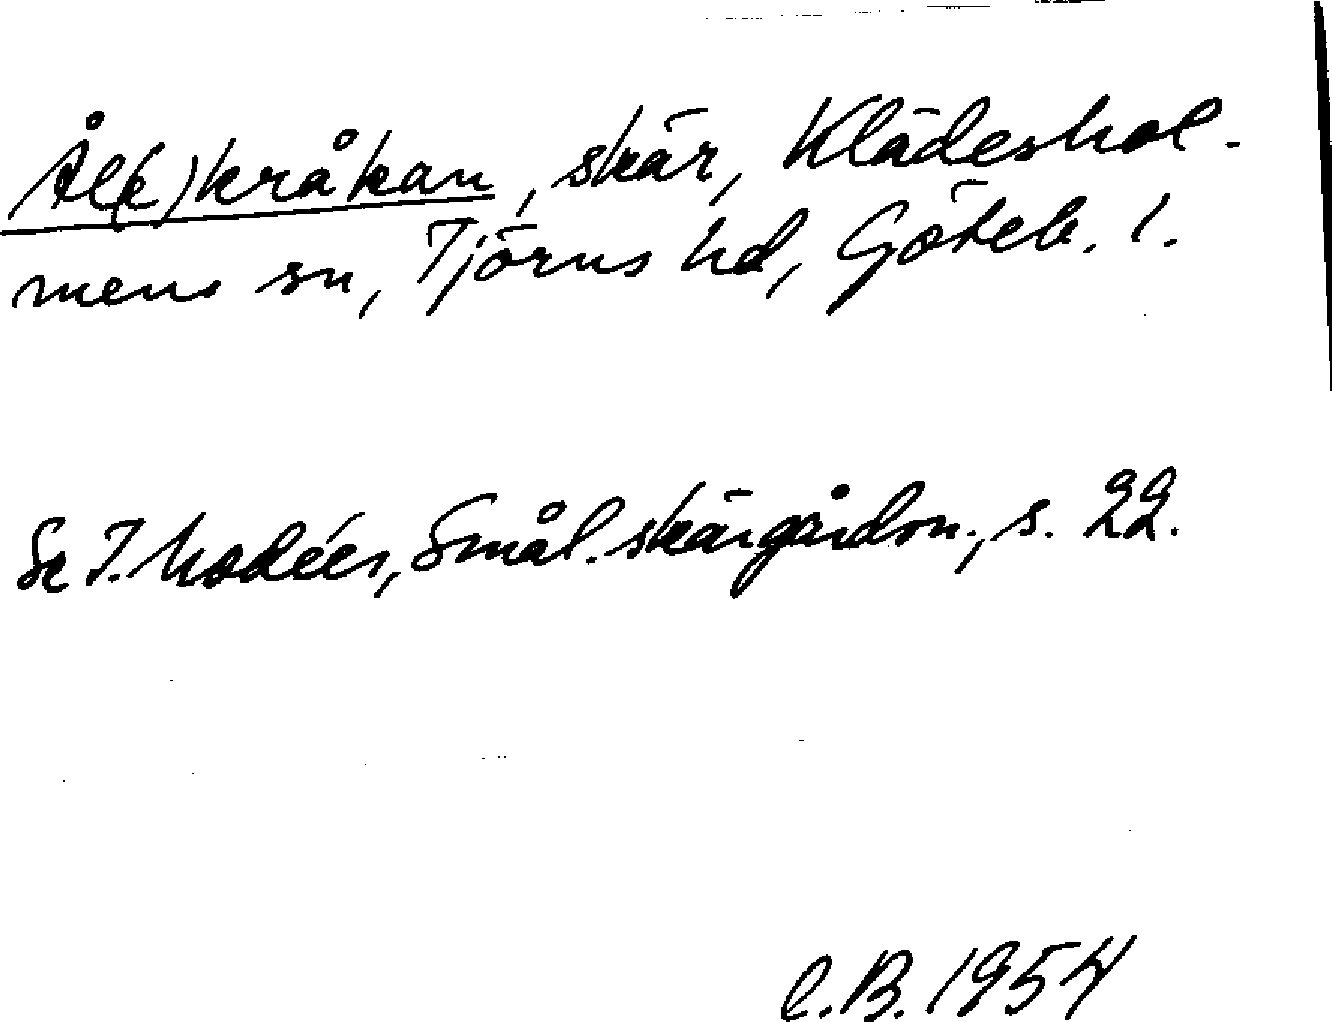 Ål(e)kråkan, skär, Klädeshol-
mens sn, Tjörns hd, Göteb. l.
Se I. Modéer, Smål. skärgårdsn., s. 22.
C.B. 1954